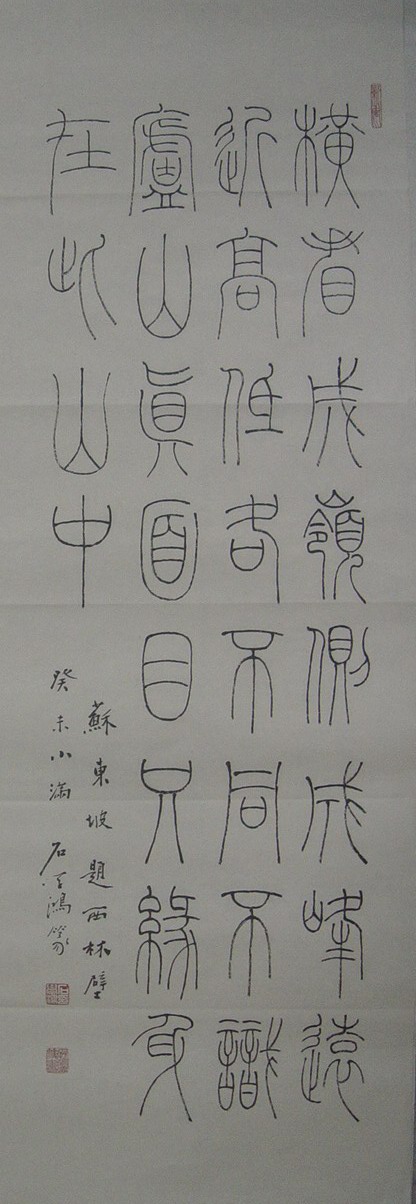 橫看成嶺側成峰遠
近高低各不同不識
廬山眞面目只緣身
在此山中
蘇東坡題西林壁
癸未小滿石學鴻篆